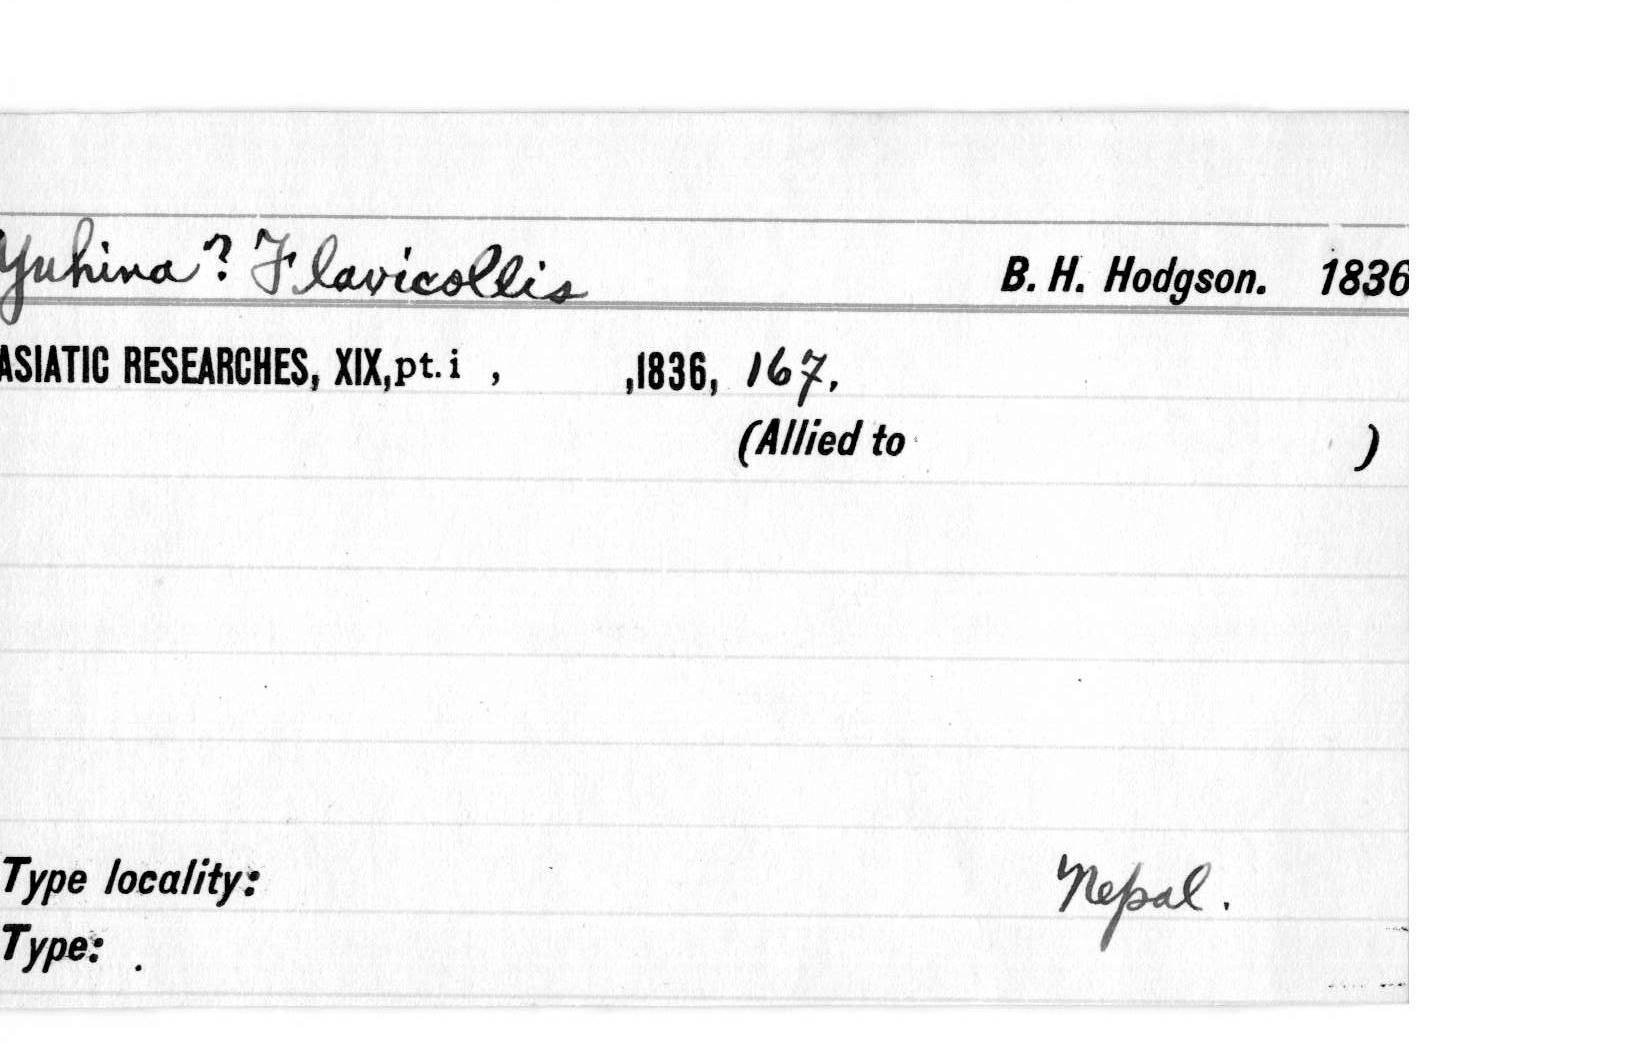 Yuhina? Flavicollis B. H. Hodgson. 1836
ASIATIC RESEARCHES, XIX, pt. i , ,1836, 167.
(Allied to )
Type locality: Nepal.
Type: .